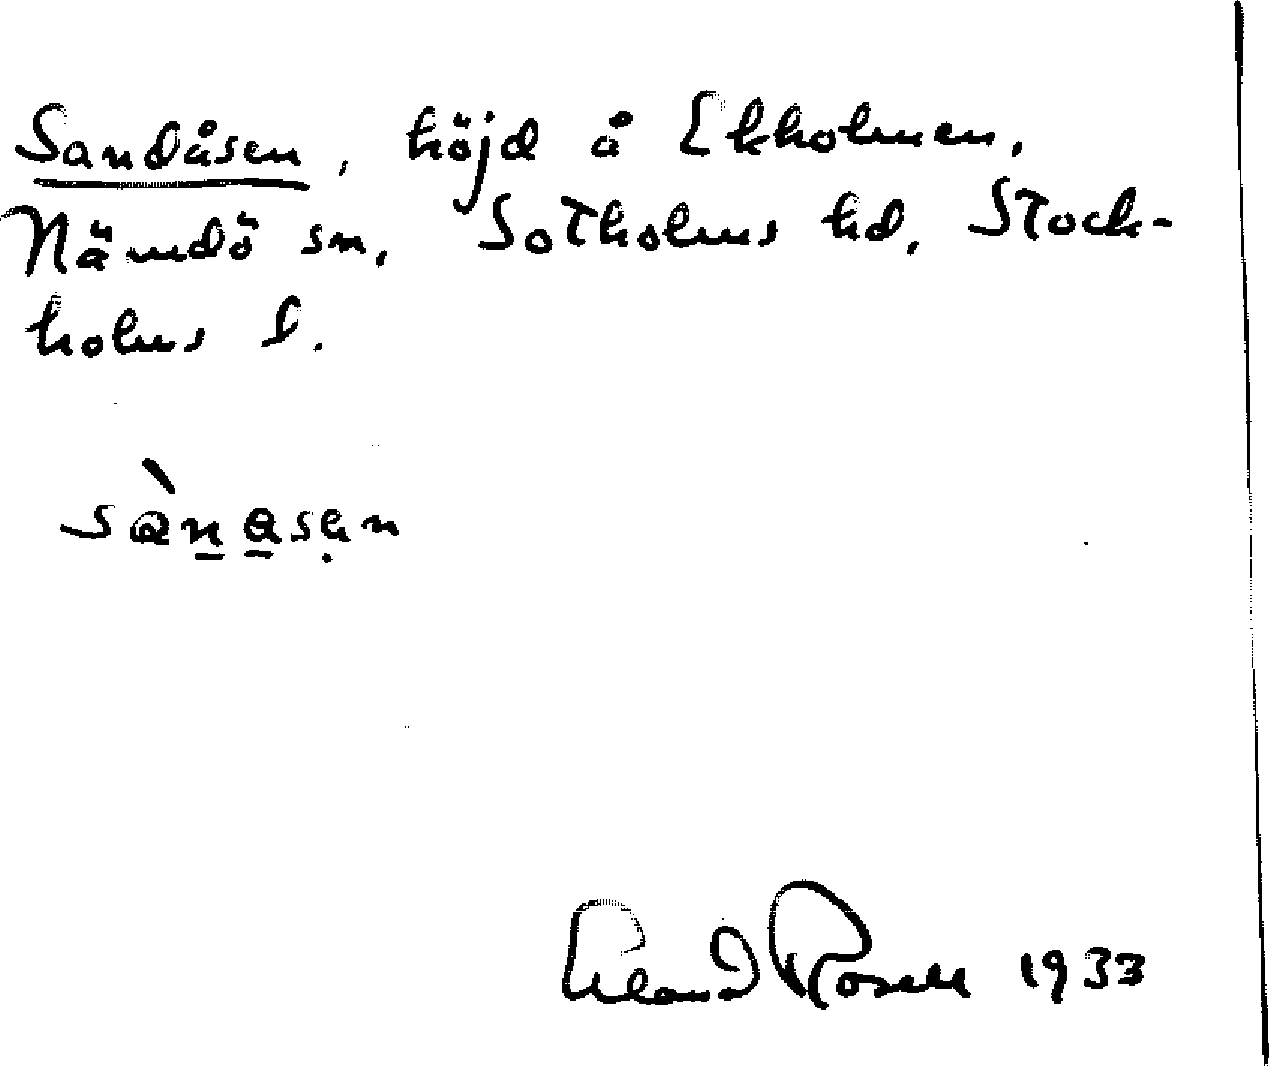 Sandåsen, höjd å Ekholmen,
Nämdö sn, Sotholms hd, Stock-
holms l.
sànasen
Erland Rosell 1933